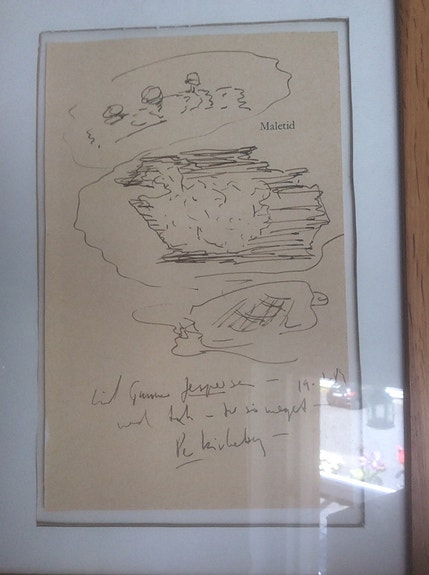 Maletid
til Gunnar Jespersen –
med tak – for så meget –
Per Kirkeby –